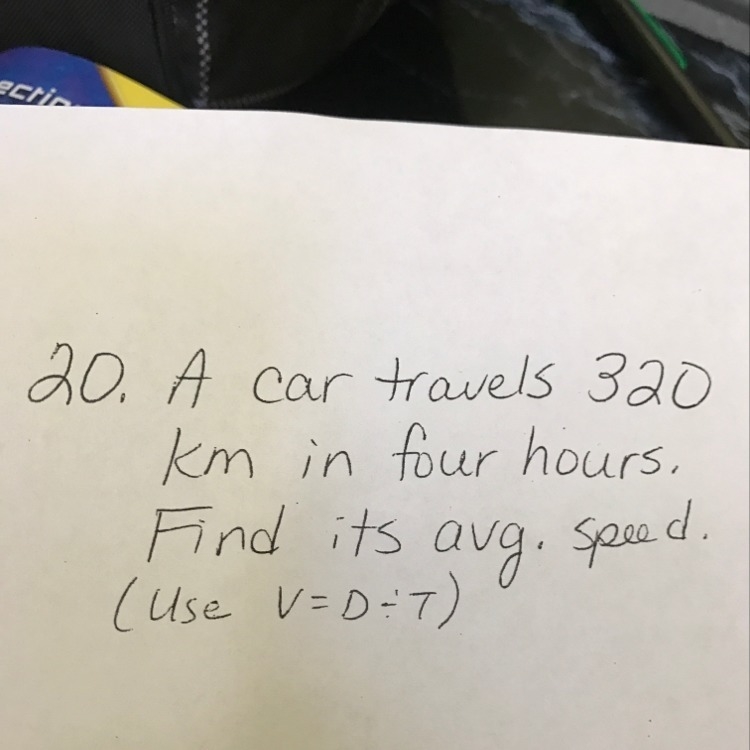 20. A car travels 320
km in four hours.
Find its avg. speed.
(Use V=D÷T)